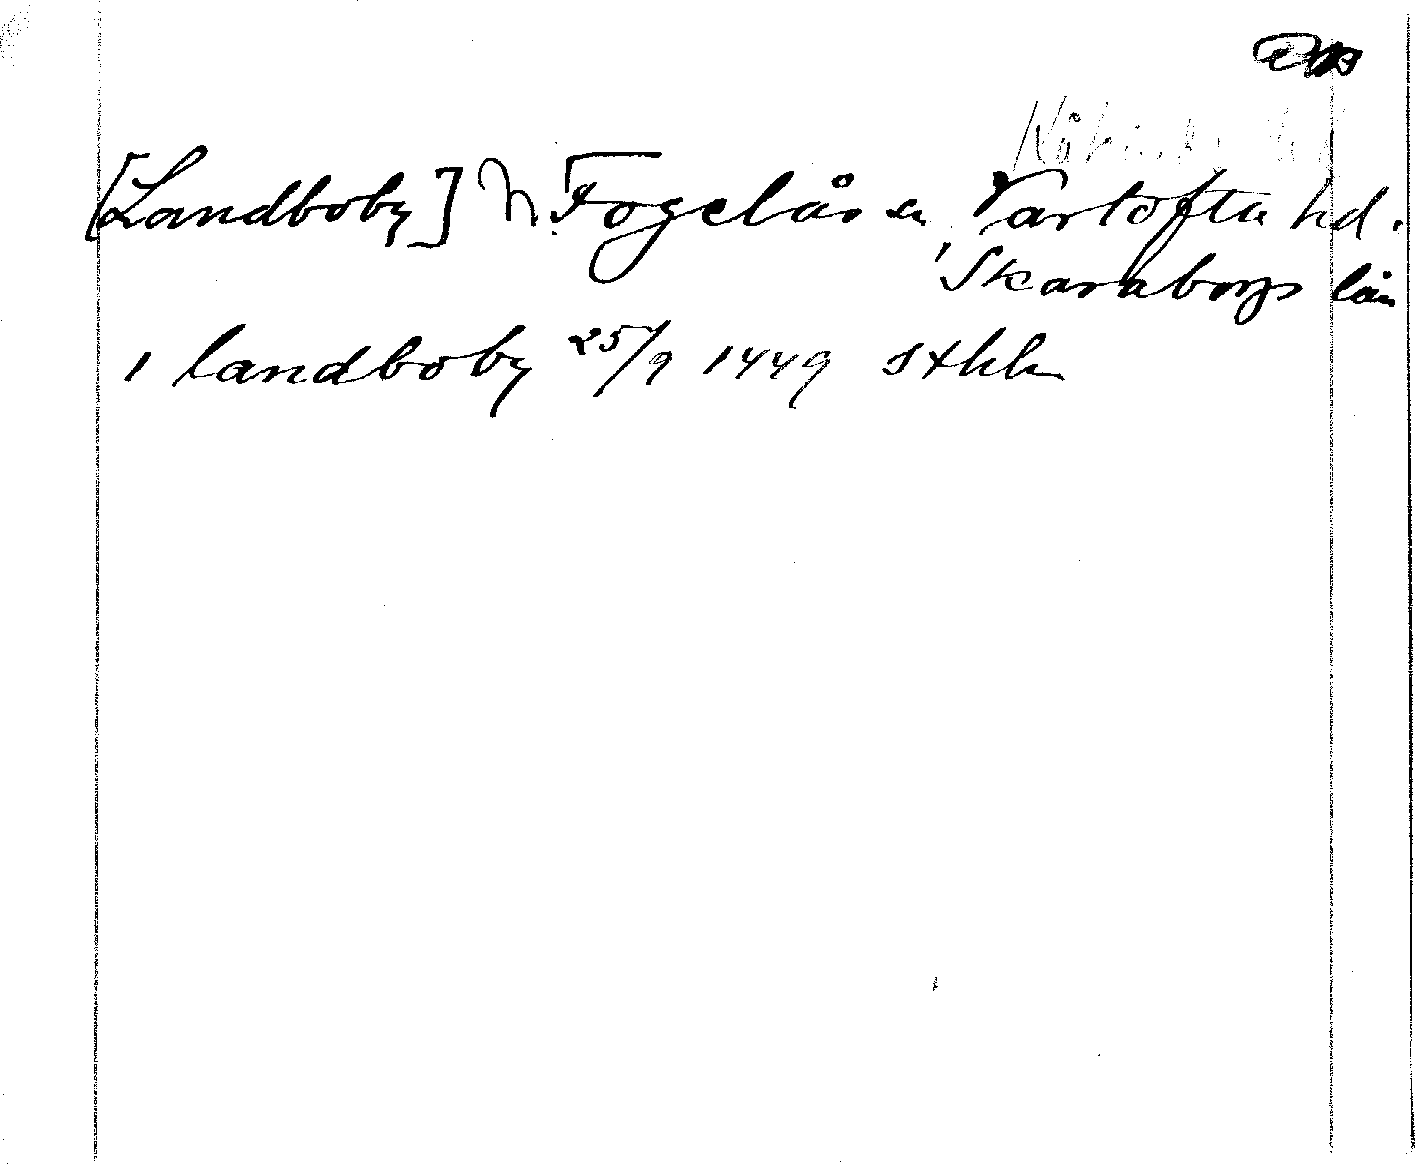 [Landboby] N. Fogelås sn, Vartofta hd.
Skaraborgs län
1 landboby 25/9 1449 sthk